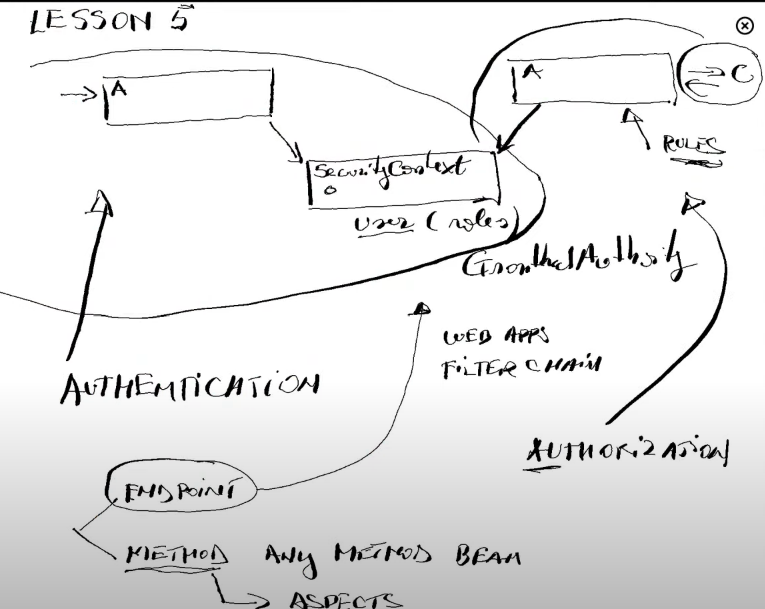 LESSON 5
A
A
C
RULES
SecurityContext
User (roles)
GrantedAuthority
WEB APPS
FILTER CHAIN
AUTHENTICATION
AUTHORIZATION
ENDPOINT
METHOD ANY METHOD BEAN
ASPECTS